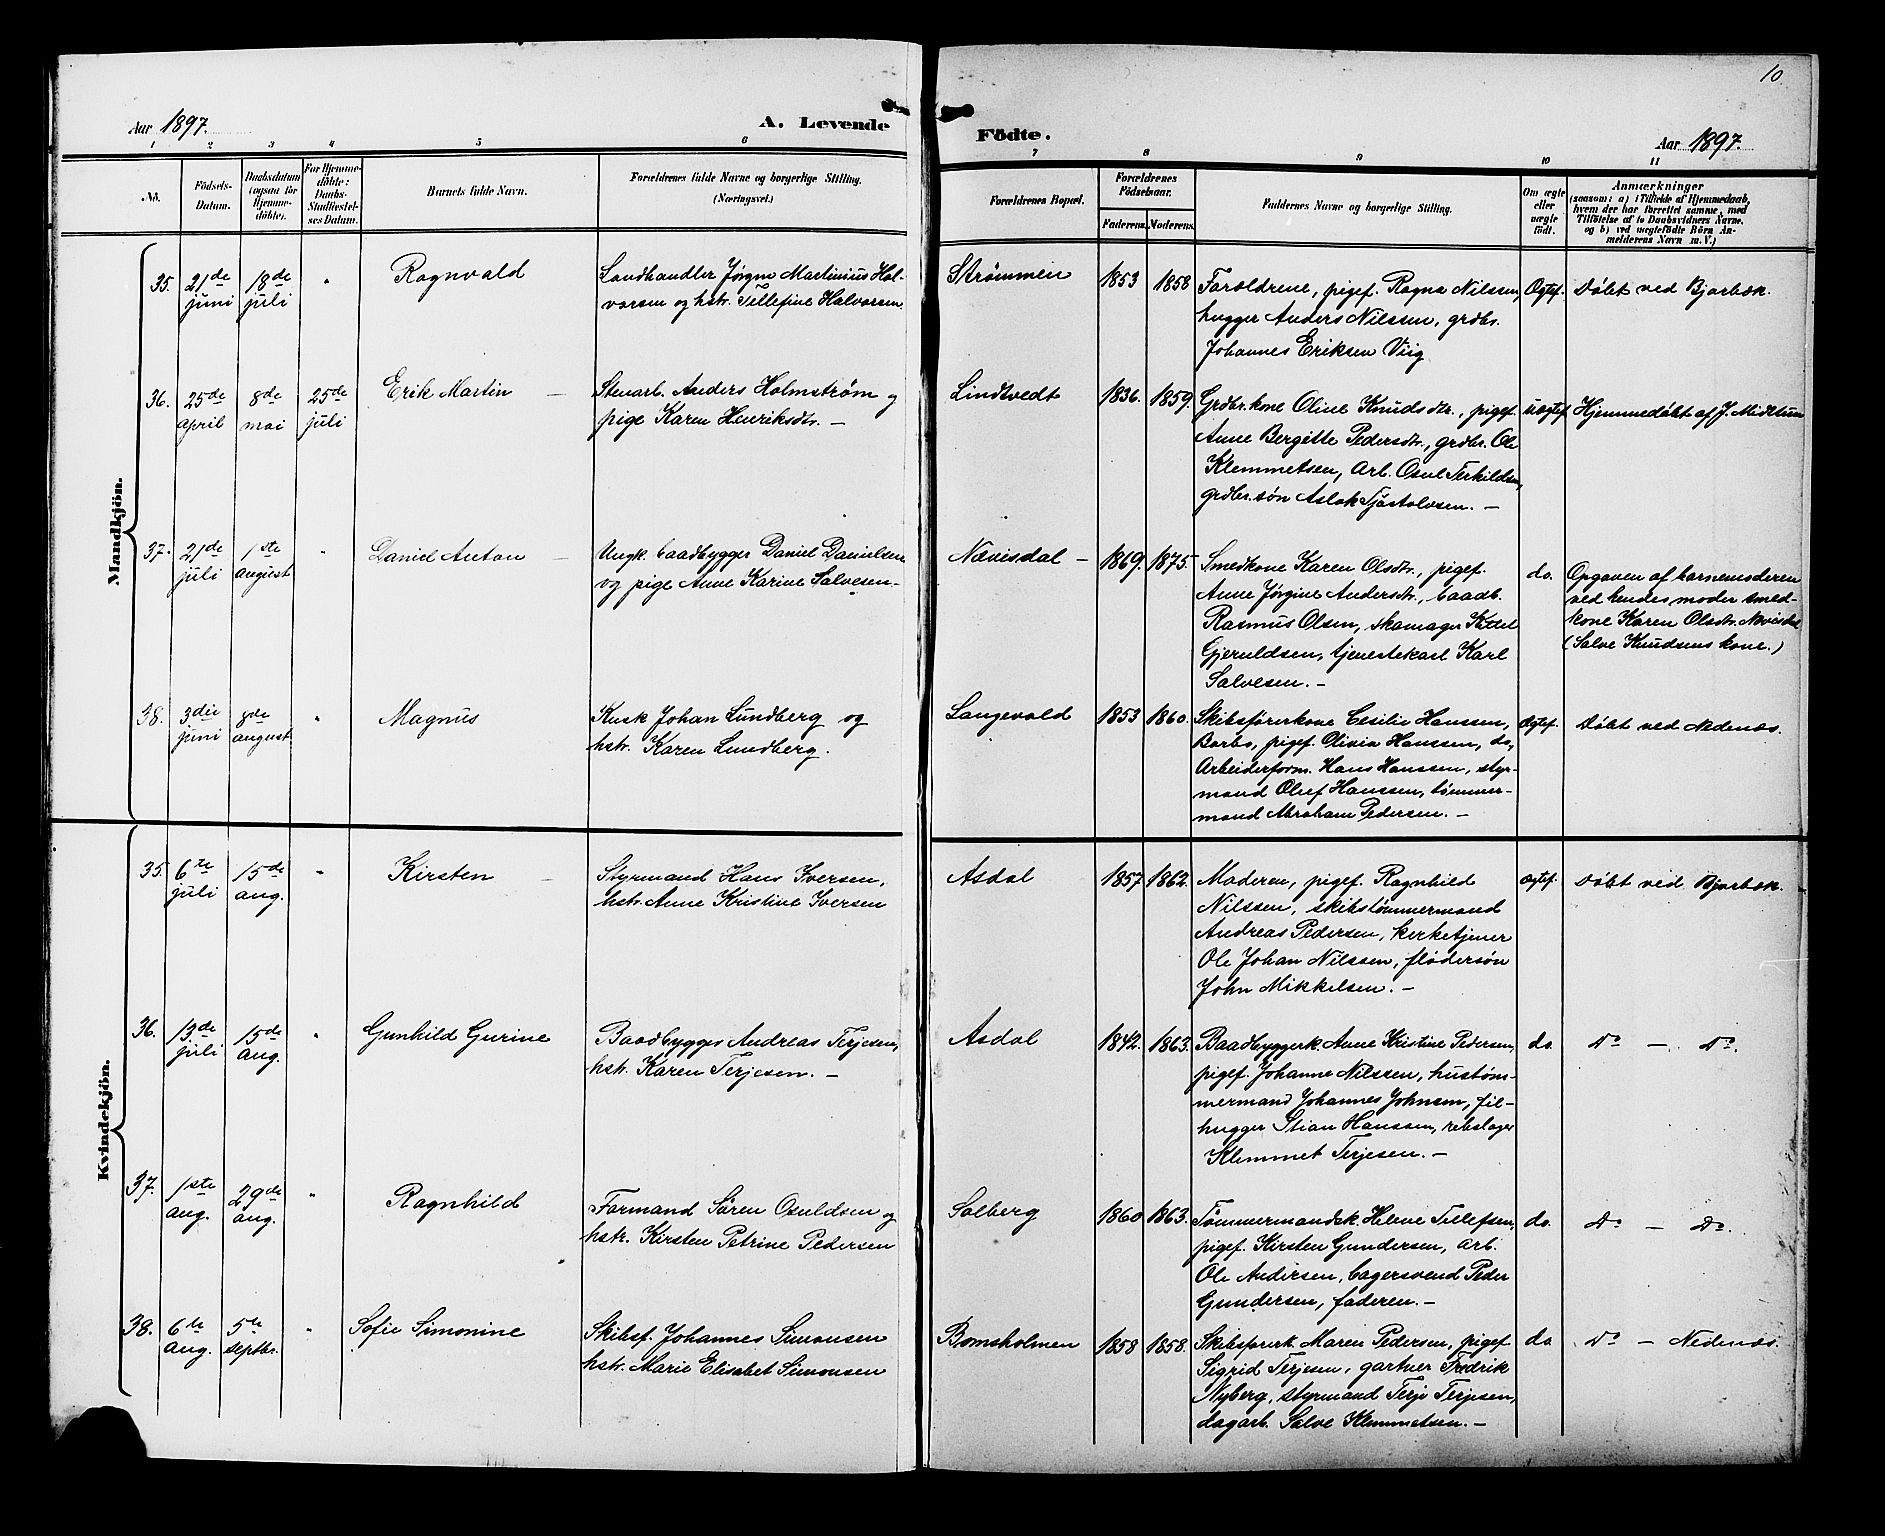 10.
Aar 1897.
A. Levende
Födte.
Aar 1897.
1 2 3 4 5 6 7 8 9 10 11
No.
Födsels-
Datum.
Daabsdatum
(ogsaa for
Hjemme-
döbte).
For Hjemme-
döbte:
Daabs-
Stadfæstel-
ses Datum.
Barnets fulde Navn.
Forældrenes fulde Navne og borgerlige Stilling.
(Næringsvei.)
Forældrenes Bopæl.
Forældrenes
Födselsaar.
Faderens. Moderens.
Faddernes Navne og borgerlige Stilling.
Om ægte
eller
uægte
födt.
Anmærkninger
(saasom: a) i Tilfælde af Hjemmedaab,
hvem der har forrettet samme, med
Tilföielse af to Daabsvidners Navne.
og b) ved uægtefödte Börn An-
melderens Navn m. V.)
Mandkjön.
35. 21de juni
18de juli
"
Ragnvald
Landhandler Jørgen Martinius Hal-
vorsen og hstr. Tellefine Halvorsen.
Strømmen
1853 1858
Forældrene, pigef. Ragna Nilssen,
hugger Anders Nilssen, grdbr.
Johannes Eriksen Viig
Ægtef.
Døbt ved Bjorbæk.
36. 25de april
8de mai
25de juli
Erik Martin —
Stenarb. Anders Holmstrøm og
pige Karen Henriksdtr. —
Lindtvedt
1836. 1859.
Grdbr.kone Oline Knudsdtr., pigef.
Anne Bergitte Pedersdtr., grdbr. Ole
Klemmetsen, arb. Osul Terkildsen,
grdbr.søn Aslak Tjøstolvsen. —
uægtef.
Hjemmedøbt af J. Midttun
37. 21de juli
1ste august
"
Daniel Anton —
Ungk. baadbygger Daniel Danielsen
og pige Anne Karine Salvesen. —
Nævisdal —
1869. 1875.
Smedkone Karen Olsdtr., pigef.
Anne Jørgine Andersdtr., baadb.
Rasmus Olsen, skomager Kittel
Gjeruldsen, tjenestekarl Karl
Salvesen. —
do.
Opgaven af barnemoderen
ved hendes moder smed-
kone Karen Olsdtr. Nævisdal
(Salve Knudsens kone.)
38. 3die juni
8de august
"
Magnus
Kusk Johan Lundberg og
hstr. Karen Lundberg.
Langevold
1853 1860.
Skibsførerkone Cesilie Hanssen,
Barbo, pigef. Olivia Hanssen, do,
Arbeiderform. Hans Hanssen, styr-
mand Oluf Hanssen, tømmer-
mand Abraham Pedersen. —
Ægtef.
Døbt ved Nedenæs.
Kvindekjön.
35. 6te juli
15de aug.
"
Kirsten —
Styrmand Hans Iversen,
hstr. Anne Kristine Iversen
Asdal
1857 1862.
Moderen, pigef. Ragnhild
Nilssen, skibstømmermand
Andreas Pedersen, kirketjener
Ole Johan Nilssen, flødersøn
John Mikkelsen. —
Ægtef.
Døbt ved Bjorbæk.
36. 13de juli
15de aug.
"
Gunhild Gurine
Baadbygger Andreas Terjesen,
hstr. Karen Terjesen. —
Asdal
1842. 1863.
Baadbyggerk. Anne Kristine Pedersen,
pigef. Johanne Nilssen, hustøm-
mermand Johannes Johnsen, fil-
hugger Stian Hanssen, rebslager
Klemmet Terjesen. —
do.
Do — Do.
37. 1ste aug.
29de aug.
"
Ragnhild
Formand Søren Osuldsen og
hstr. Kirsten Petrine Pedersen
Solberg
1860 1863.
Tømmermandsk. Helene Tellefsen,
pigef. Kirsten Gundersen, arb.
Ole Andersen, bagersvend Peder
Gundersen, faderen. —
do.
Do — Do.
38. 6te aug.
5te septbr.
"
Sofie Simonine
Skibsf. Johannes Simonsen
hstr. Marie Elisabet Simonsen
Bomsholmen
1858 1858.
Skibsførerk. Maren Pedersen, pigef.
Sigrid Terjesen, gartner Fredrik
Nyberg, styrmand Terje Terjesen,
dagarb. Salve Klemmetsen. —
do.
Do — Nedenæs.